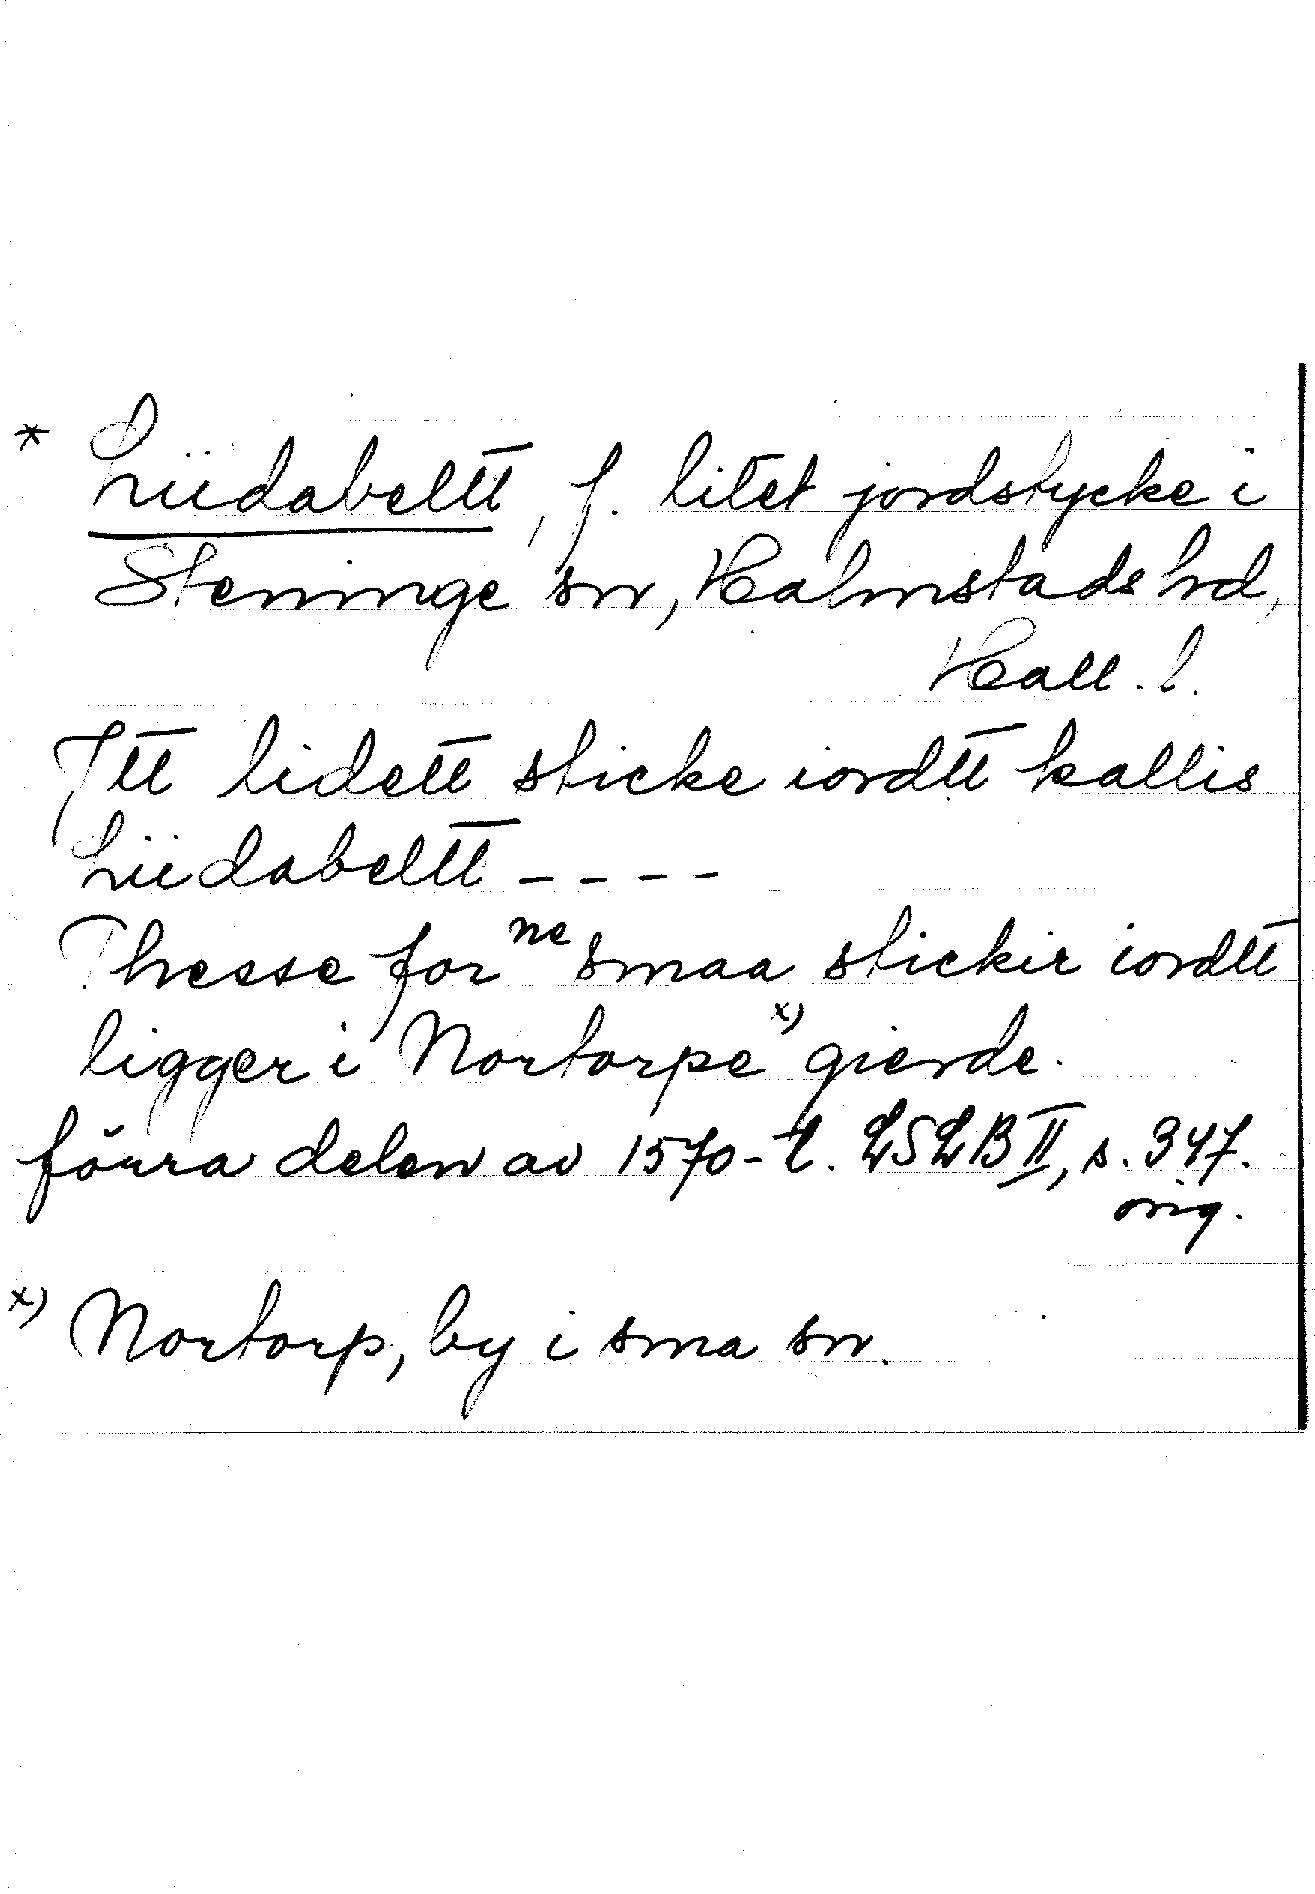 * Liidabeltt, f. litet jordstycke i
Steninge sn, Halmstads hd,
Hall. l.
Itt lidett sticke iordtt kallis
Liidabeltt ----
Thesse for ne smaa stickir iordtt
ligger i Nortorpe x) gierde.
förra delen av 1570-t. LSLB II, s. 347.
orig.
x) Nortorp, by i sma sn.